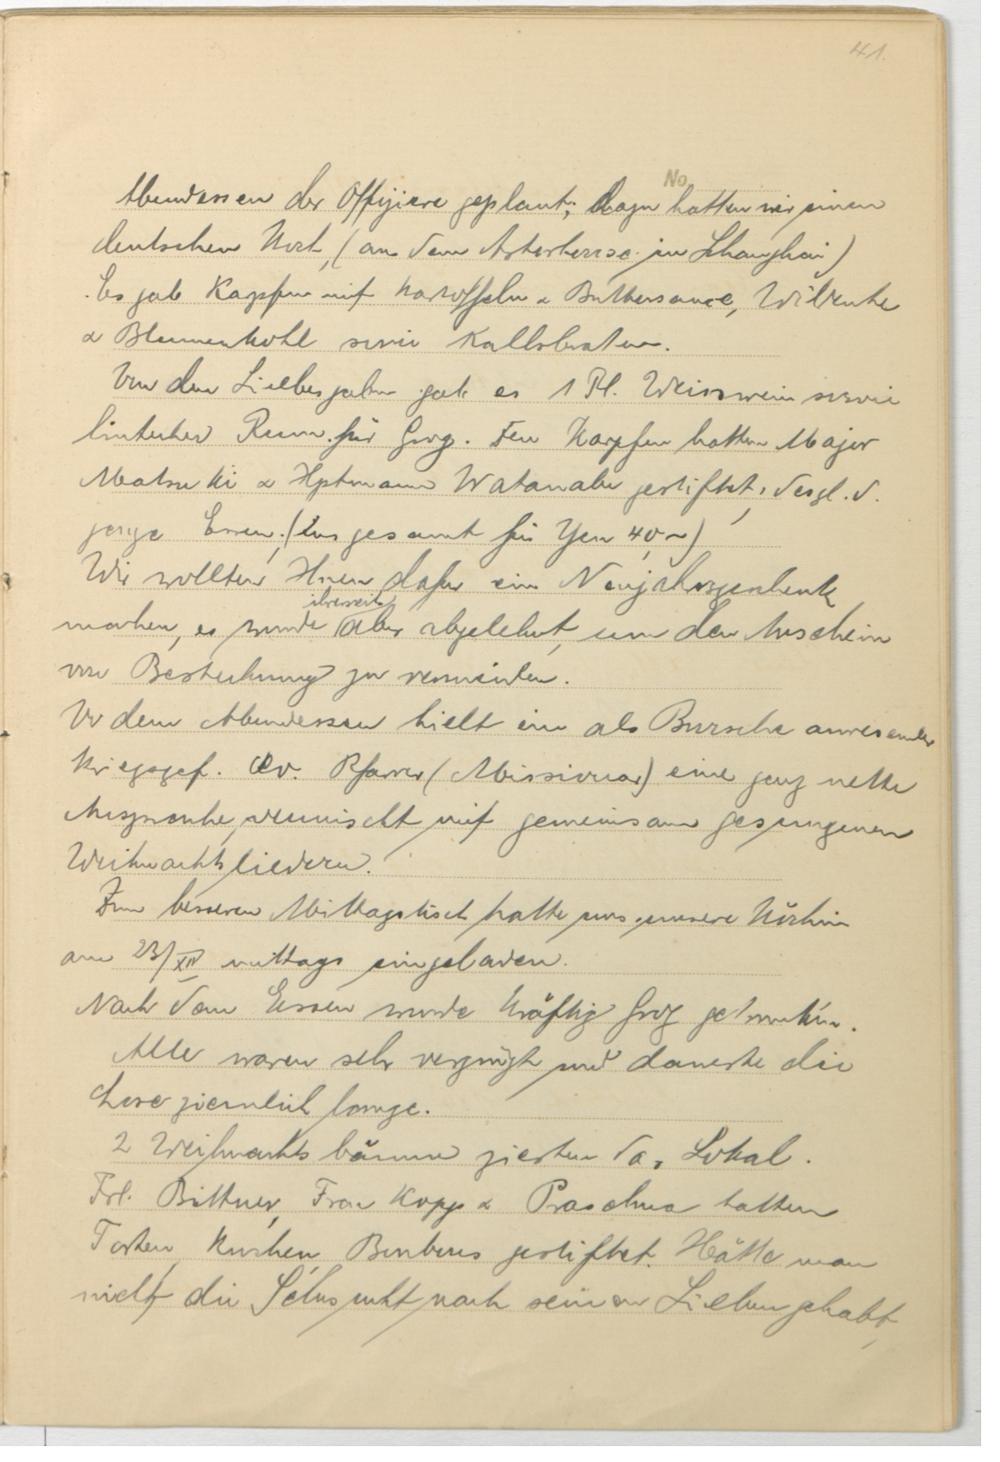 41.
No
Abendessen der Offiziere geplant; dazu hatten wir einen
deutschen Koch, (aus dem Astorhouse in Schanghai)
Es gab Karpfen mit Kartoffeln & Buttersauce, Wildente
& Blumenkohl sowie Kalbsbraten.
Von den Liebesgaben gab es 1 Fl. Weisswein sowie
literweise Rum für Grog. Den Karpfen hatten Major
Matsuki & Hptmann Watanabe gestiftet, desgl. d.
ganze Essen. (Insgesamt für Yen 40,-)
Wir wollten Ihnen dafür ein Neujahrsgeschenk
ihrerseits
machen, es wurde aber abgelehnt, um den Anschein
von Bestechung zu vermeiden.
Vor dem Abendessen hielt ein als Bursche anwesender
Kriegsgef. ev. Pfarrer (Missionar) eine ganz nette
Ansprache, vermischt mit gemeinsam gesungenen
Weihnachtsliedern.
Zum besseren Mittagstisch hatte uns unsere Köchin
am 23/XII mittags eingeladen.
Nach dem Essen wurde kräftig Grog getrunken.
Alle waren sehr vergnügt und dauerte die
Chose ziemlich lange.
2 Weihnachtsbäume zierten das Lokal.
Frl. Bittner, Frau Kopp & Praschma hatten
Torten, Kuchen, Bonbons gestiftet. Hätte man
nicht die Sehnsucht nach seinen Lieben gehabt,